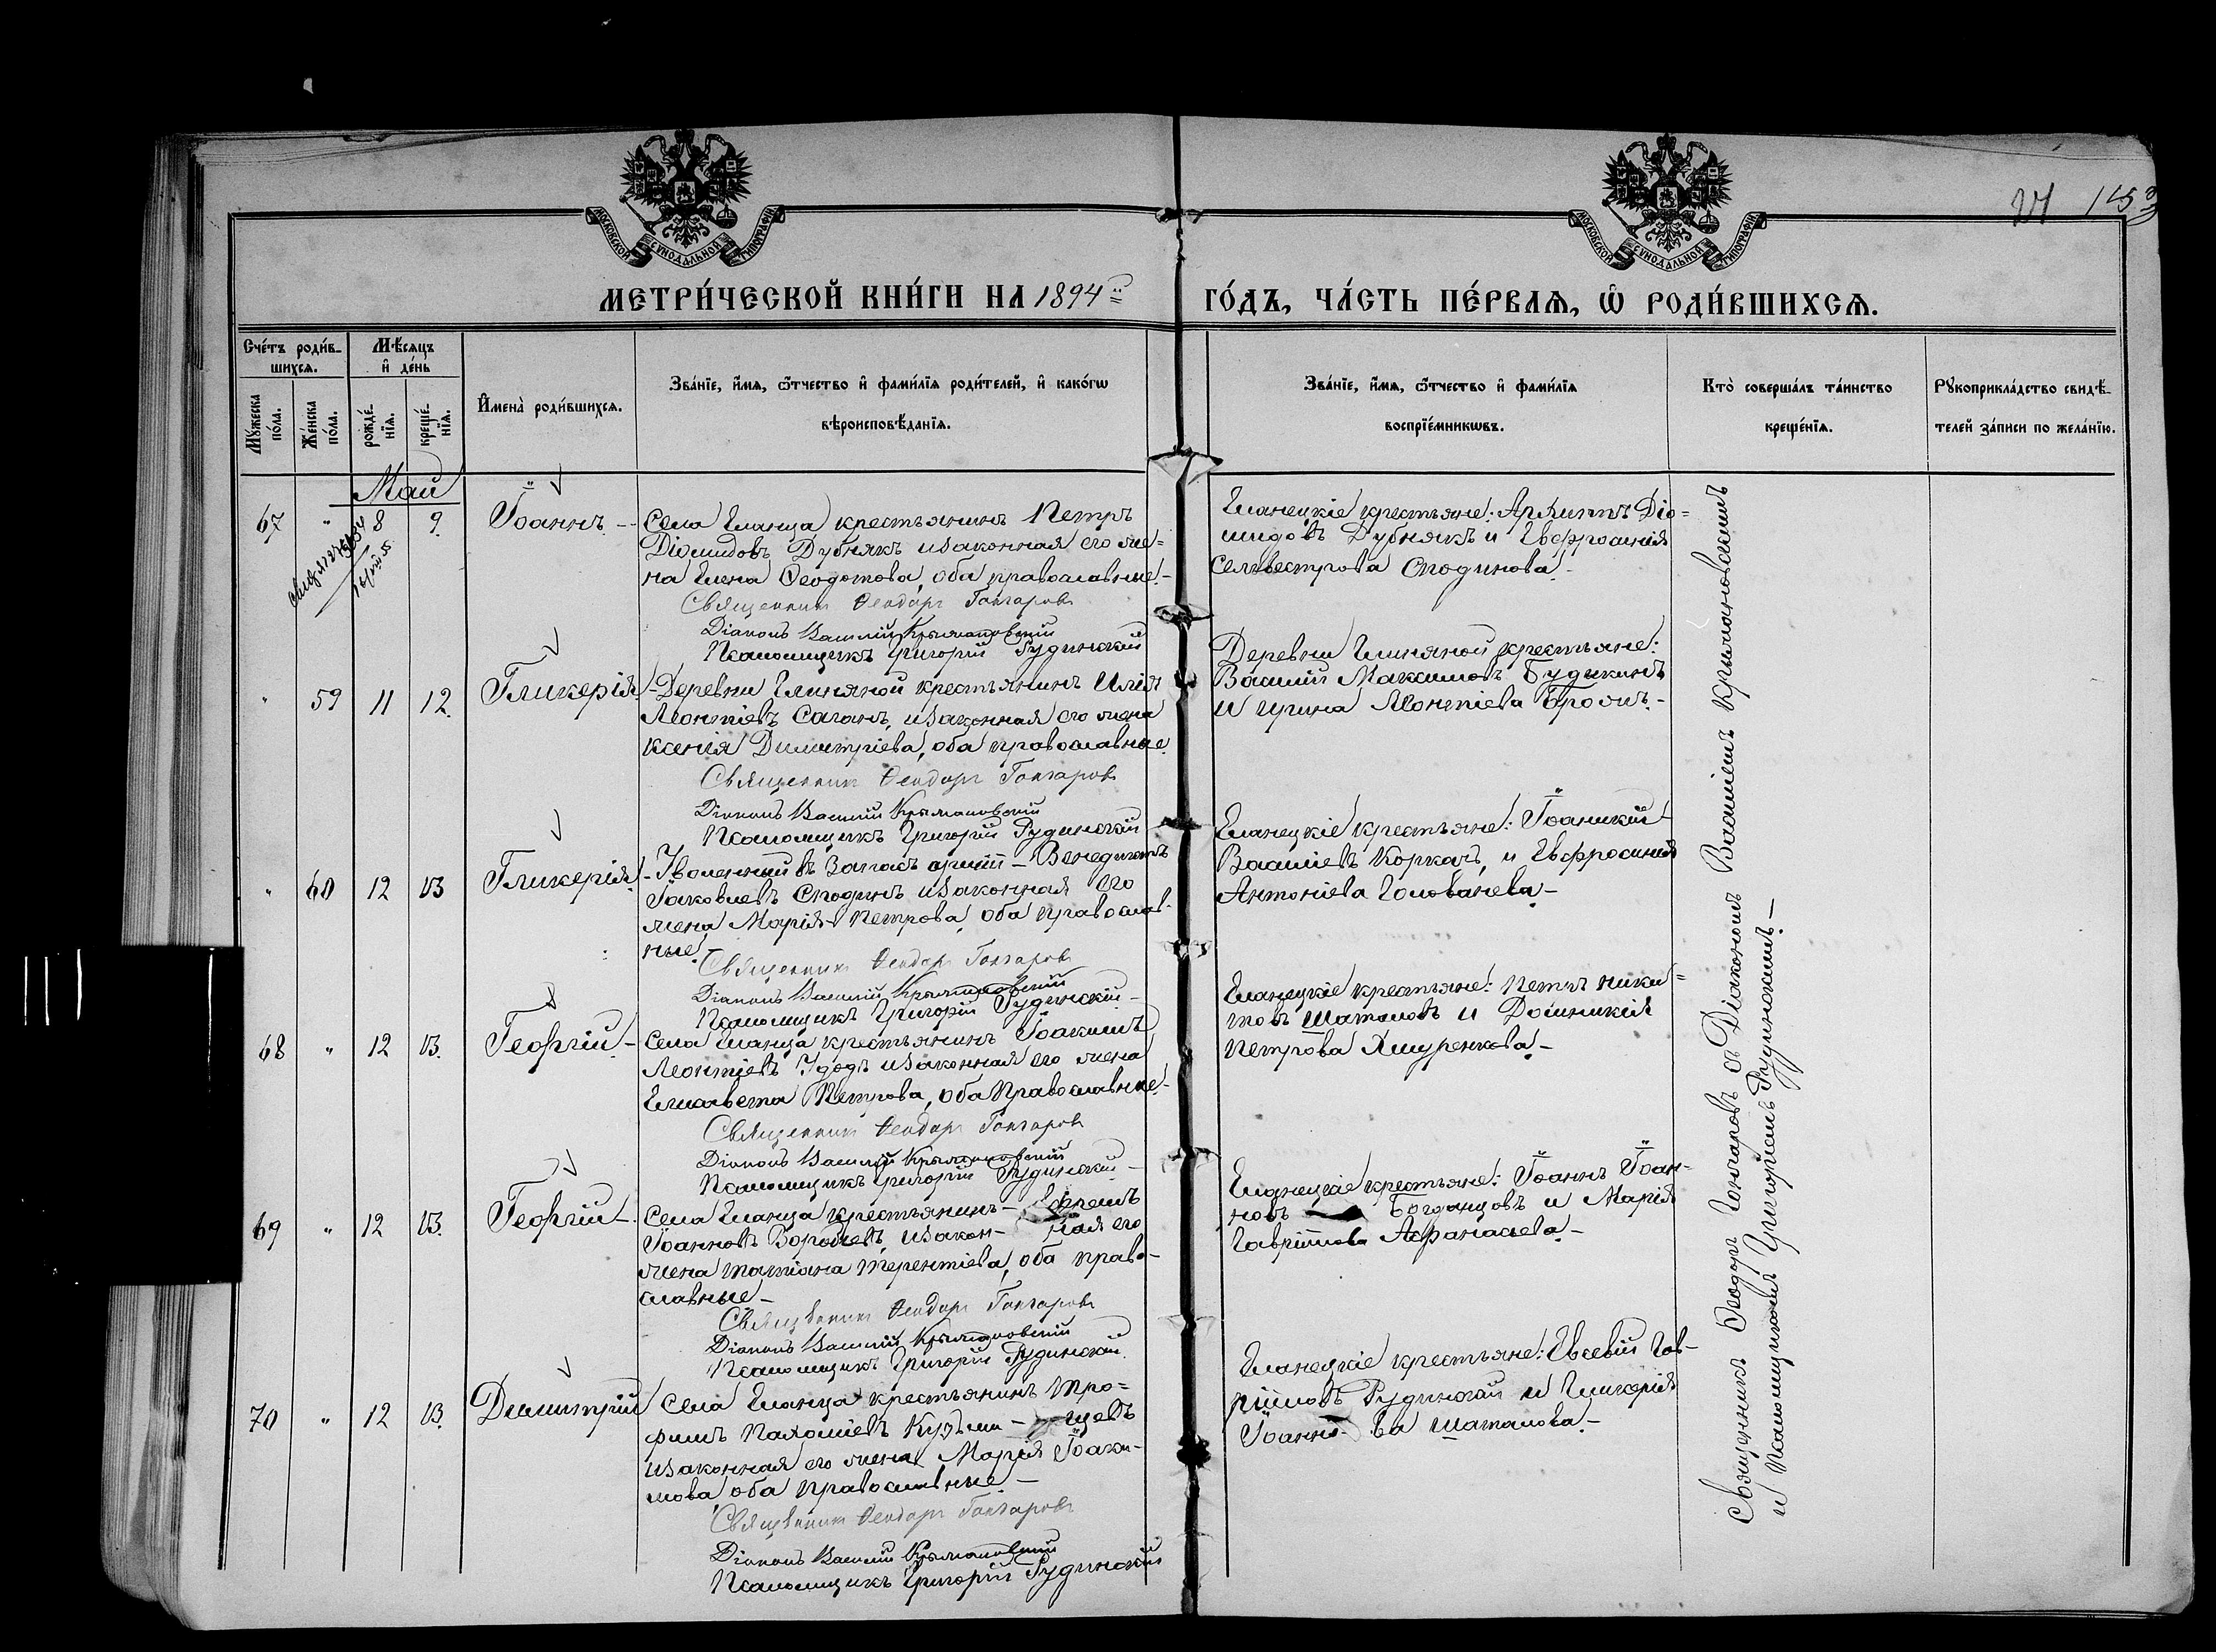 МОСКОВСКОЙ СУНОДАЛЬНОЙ ТИПОГРАФІИ
МОСКОВСКОЙ СУНОДАЛЬНОЙ ТИПОГРАФІИ
153
МЕТРИ́ЧЕСКОЙ КНИ́ГИ НА 1894й
ГО́ДЪ, ЧА́СТЬ ПЕ́РВАѦ, Ѡ҆ РОДИ́ВШИХСѦ.
Сче́тъ роди́в-
шихсѧ.
Мѣ́сѧцъ
и҆ де́нь
Мꙋ́жеска
по́ла.
Же́нска
по́ла.
рожде́-
нїѧ.
креще́-
нїѧ.
И҆мена̀ роди́вшихсѧ.
Зва́нїе, и҆́мѧ, ѻ҆́тчество и҆ фами́лїѧ роди́телей, и҆ како́гѡ
вѣроисповѣ́данїѧ.
Зва́нїе, и҆́мѧ, ѻ҆́тчество и҆ фами́лїѧ
воспрїе́мникѡвъ.
Кто̀ соверша́лъ та́инство
креще́нїѧ.
Рꙋкоприкла́дство свидѣ́-
телей за́писи по жела́нїю.
Май
67 " 8 9 Іоаннъ -
Села Еланца крестьянинъ Петръ
Діомидовъ Дубнякъ и законная его же=
на Елена Ѳеодотова, оба православные.-
Священник Ѳеодоръ Гончаровъ
Діаконъ Василій Крыжановскій
Псаломщикъ Григорій Рудинскій
Еланецкіе крестьяне: Архиппъ Діо=
мидовъ Дубнякъ и Евфросинія
Селивестрова Сподинова.-
" 59 11 12. Гликерія
-Деревни Глиняной крестьянинъ Илія
Леонтіевъ Саганъ, и законная его жена
Ксенія Димитріева, оба православные.
Священник Ѳеодоръ Гончаровъ
Діаконъ Василій Крыжановскій
Псаломщикъ Григорій Рудинскій
Деревни Глиняной крестьяне:
Василій Максимовъ Будыкинъ
и Ирина Леонтіева
" 60 12 13 Гликерія
-Уволенный въ запасъ арміи - Венедиктъ
Іаковлевъ Сподинъ и законная его
жена Марія Петрова, оба православ-
ные.
Священник Ѳеодоръ Гончаровъ
Діаконъ Василій Крыжановскій
Псаломщикъ Григорій Рудинскій
Еланецкіе крестьяне: Іоаникій
Василіевъ Коркачъ, и Евфросинія
Антоніева Голованева-
68 " 12 13. Георгій -
Села Еланца крестьянинъ Іоакимъ
Леонтіевъ Удодъ и законная его жена
Елисавета Петрова, оба Православные.-
Священник Ѳеодоръ Гончаровъ
Діаконъ Василій Крыжановскій
Псаломщикъ Григорій Рудинскій
Еланецкіе крестьяне: Петръ Ники=
товъ Шаталовъ и Домникія
Петрова Хмуренкова.-
69 " 12 13. Георгій -
Села Еланца крестьянинъ - Ефремъ
Іоанновъ и закон- ная его
жена Татіана Терентіева, оба право-
славные-
Священник Ѳеодоръ Гончаровъ
Діаконъ Василій Крыжановскій
Псаломщикъ Григорій Рудинскій
Еланецкіе крестьяне: Іоаннъ Іоан-
новъ Богданцовъ и Марія
Гавріилова Афанасьева.-
70 " 12 13. Димитрій
Села Еланца крестьянинъ Тро=
фимъ Пахоміевъ Кузьми- щевъ
и законная его жена Марія Іоаки-
мова, оба православные.-
Священник Ѳеодоръ Гончаровъ
Діаконъ Василій Крыжановскій
Псаломщикъ Григорій Рудинскій
Еланецкіе крестьяне: Евсевій Гав-
ріиловъ Рудинскій и Гликерія
Іоанно- ва Шаталова.-
Священникъ Ѳеодоръ Гончаровъ съ Діакономъ Василіемъ Крыжановскимъ
и Псаломщикомъ Григоріемъ Рудинскимъ.-